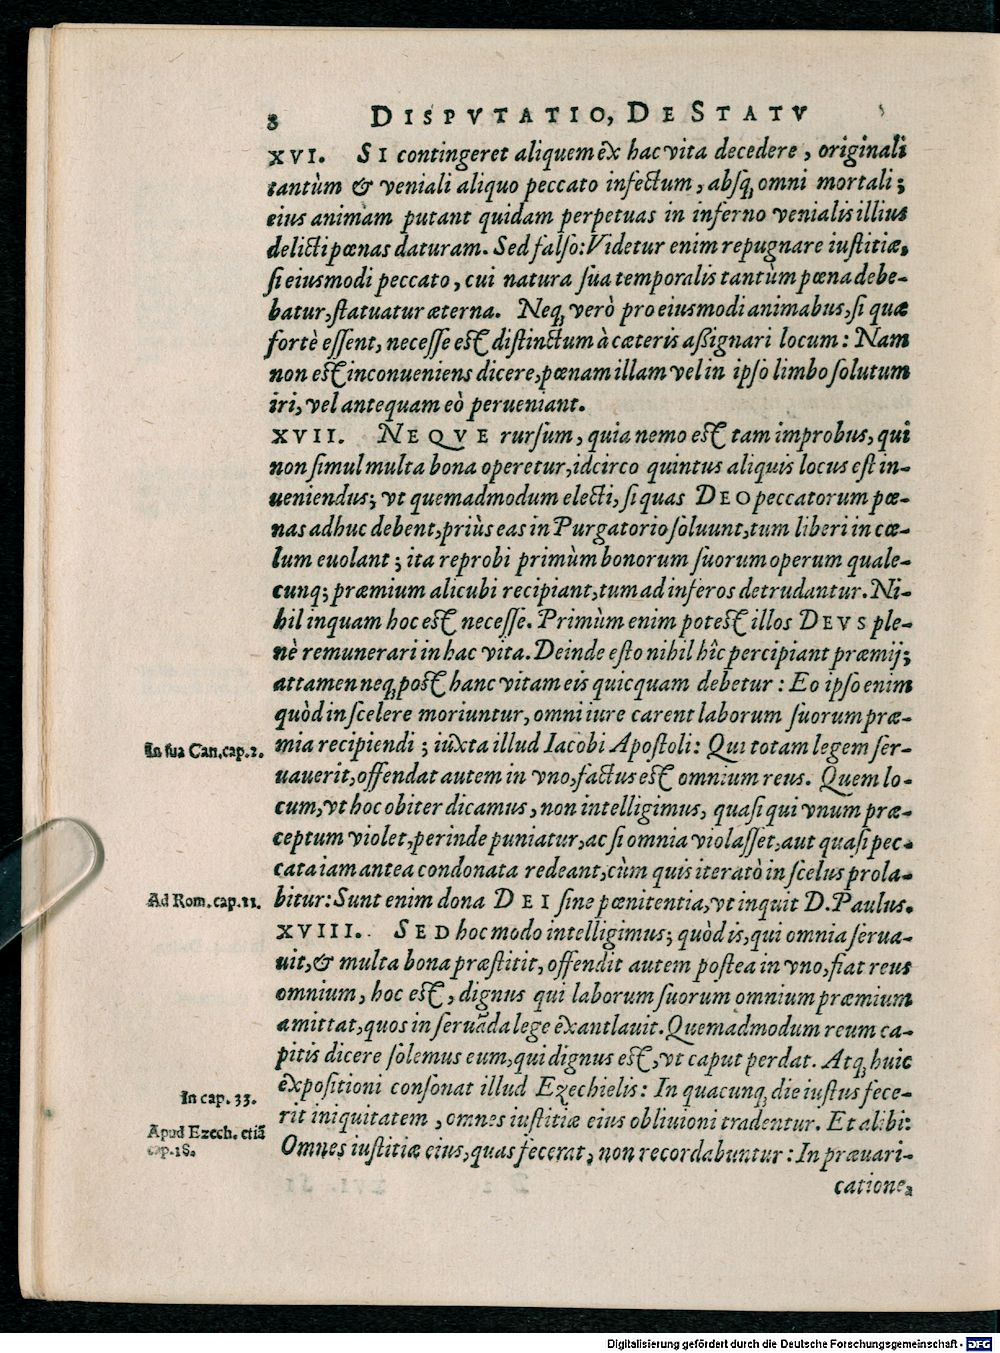 8 DISPVTATIO, DE STATV
XVI. SI contingeret aliquem ex hac vita decedere, originali
tantùm & veniali aliquo peccato infectum, absq; omni mortali;
eius animam putant quidam perpetuas in inferno venialis illius
delicti pœnas daturam. Sed falso: Videtur enim repugnare iustitiæ,
si eiusmodi peccato, cui natura sua temporalis tantùm pœna debe-
batur, statuatur æterna. Neq; verò pro eiusmodi animabus, si quæ
fortè essent, necesse est distinctum à cæteris aßignari locum: Nam
non est inconueniens dicere, pœnam illam vel in ipso limbo solutum
iri, vel antequam eò perueniant.
XVII. NEQVE rursum, quia nemo est tam improbus, qui
non simul multa bona operetur, idcirco quintus aliquis locus est in-
ueniendus; vt quemadmodum electi, si quas DEO peccatorum pœ-
nas adhuc debent, priùs eas in Purgatorio soluunt, tum liberi in cœ-
lum euolant; ita reprobi primùm bonorum suorum operum quale-
cunq; præmium alicubi recipiant, tum ad inferos detrudantur. Ni-
hil inquam hoc est necesse. Primùm enim potest illos DEVS ple-
nè remunerari in hac vita. Deinde esto nihil hîc percipiant præmij;
attamen neq; post hanc vitam eis quicquam debetur: Eo ipso enim
quòd in scelere moriuntur, omni iure carent laborum suorum præ-
In sua Can. cap. 2.
mia recipiendi; iuxta illud Iacobi Apostoli: Qui totam legem ser-
uauerit, offendat autem in vno, factus est omnium reus. Quem lo-
cum, vt hoc obiter dicamus, non intelligimus, quasi qui vnum præ-
ceptum violet, perinde puniatur, ac si omnia violasset, aut quasi pec-
cata iam antea condonata redeant, cùm quis iteratò in scelus prola-
Ad Rom. cap. 11.
bitur: Sunt enim dona DEI sine pœnitentia, vt inquit D. Paulus.
XVIII. SED hoc modo intelligimus; quòd is, qui omnia serua-
uit, & multa bona præstitit, offendit autem postea in vno, fiat reus
omnium, hoc est, dignus qui laborum suorum omnium præmium
amittat, quos in seruãda lege exantlauit. Quemadmodum reum ca-
pitis dicere solemus eum, qui dignus est, vt caput perdat. Atq; huic
expositioni consonat illud Ezechielis: In quacunq; die iustus fece-
In cap. 33.
rit iniquitatem, omnes iustitiæ eius obliuioni tradentur. Et alibi:
Apud Ezech. etiã
cap. 18.
Omnes iustitiæ eius, quas fecerat, non recordabuntur: In præuari-
catione,
Digitalisierung gefördert durch die Deutsche Forschungsgemeinschaft - DFG